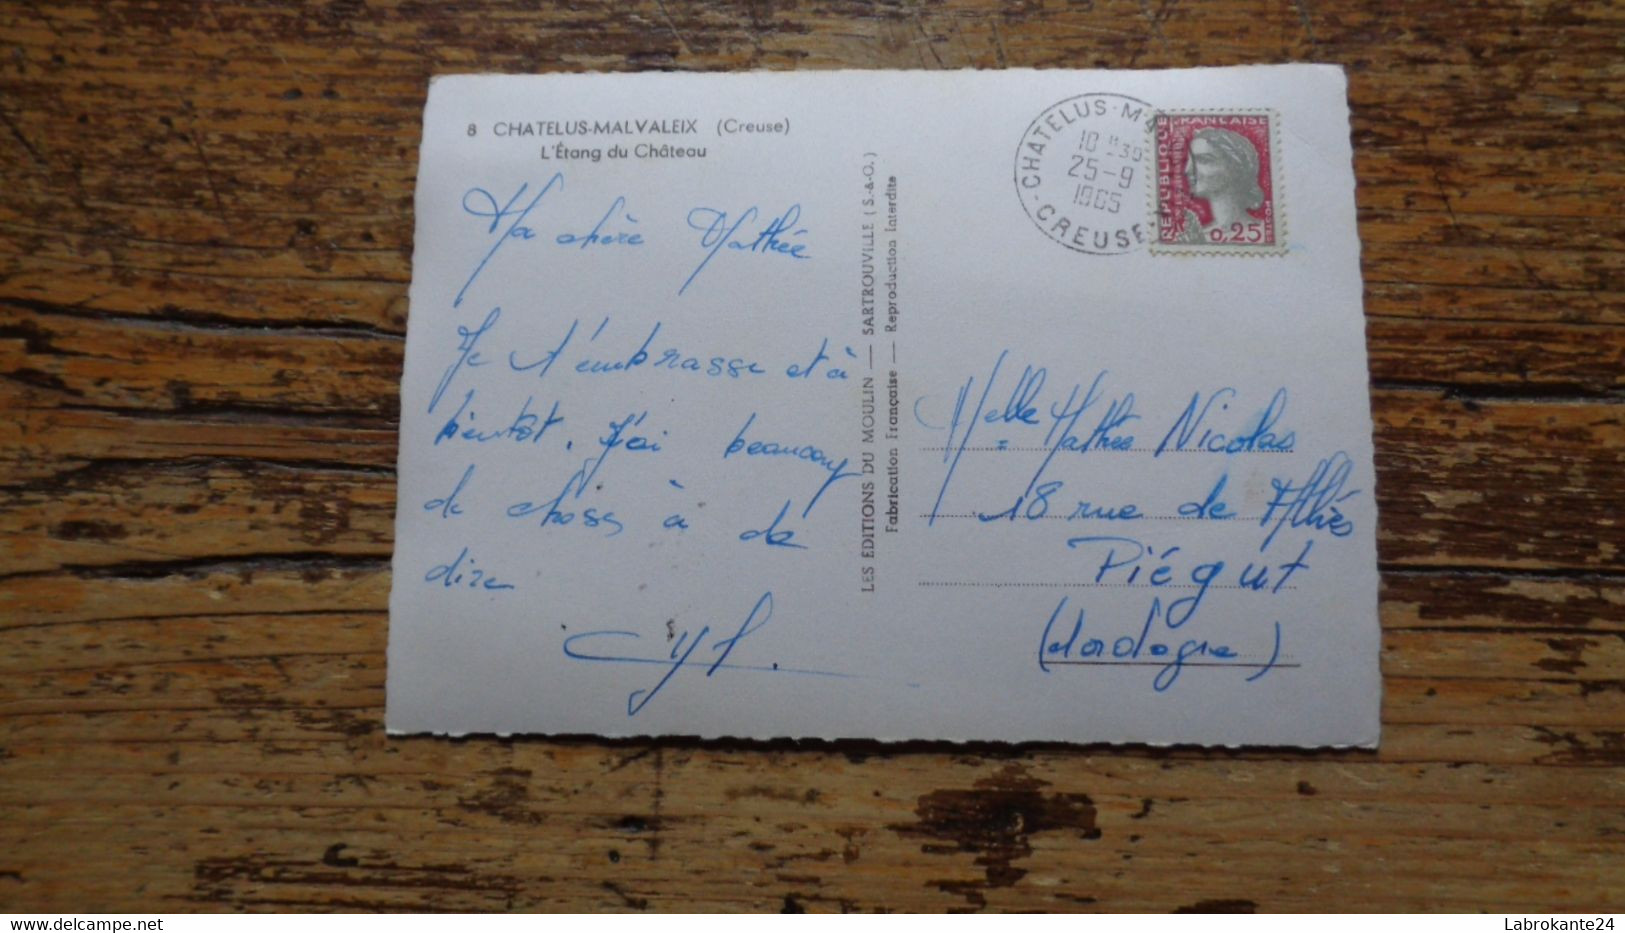 8 CHATELUS-MALVALEIX (Creuse)
L'Étang du Château
Ma chère Mathée
Je t'embrasse et à
bientôt. J'ai beaucoup
de choses à de
dire
LES EDITIONS DU MOULIN — SARTROUVILLE (S.-&-O.)
Fabrication Française — Reproduction Interdite
CHATELUS-MA
10 H30
25-9
1965
CREUSE
REPUBLIQUE
FRANCAISE
0,25
Melle Mathée Nicolas
18 rue de
Piégut
(dordogne)
delcampe.net
Labrokante24